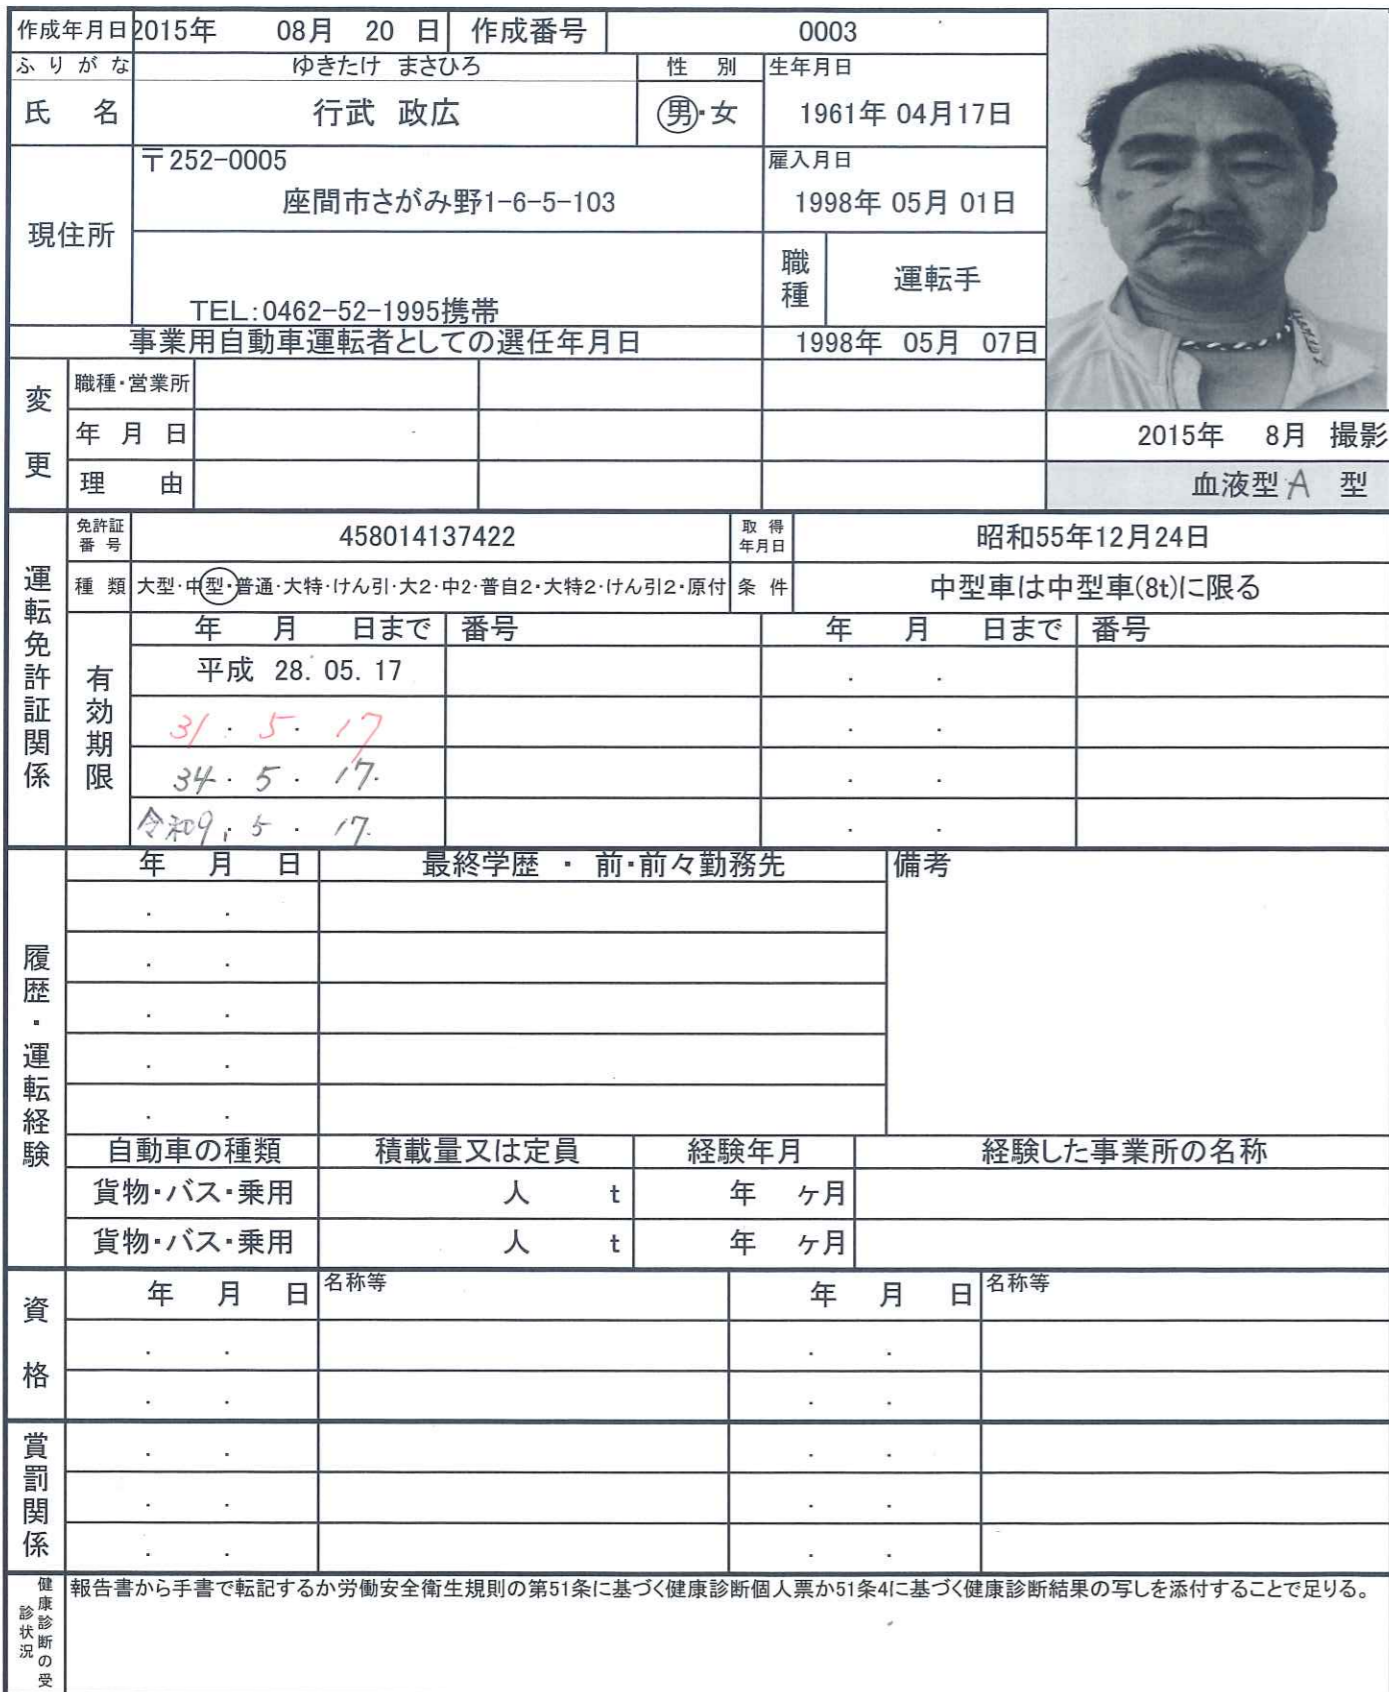 作成年月日 2015年 08月 20 日 作成番号 0003
ふりがな ゆきたけ まさひろ 性 別 生年月日
氏 名 行武 政広 男・女 1961年 04月17日
現住所 〒252-0005 雇入月日
座間市さがみ野1-6-5-103 1998年 05月 01日
職種 運転手
TEL:0462-52-1995携帯
事業用自動車運転者としての選任年月日 1998年 05月 07日
変更 職種・営業所
年 月 日 2015年 8月 撮影
理 由 血液型 A 型
運転免許証関係 免許証番号 458014137422 取得年月日 昭和55年12月24日
種 類 大型・中型・普通・大特・けん引・大2・中2・普自2・大特2・けん引2・原付 条 件 中型車は中型車(8t)に限る
有効期限 年 月 日まで 番号 年 月 日まで 番号
平成 28. 05. 17 . .
31 . 5 . 17 . .
34 . 5 . 17. . .
令和9. 5 . 17. . .
履歴・運転経験 年 月 日 最終学歴 ・ 前・前々勤務先 備考
. .
. .
. .
. .
. .
自動車の種類 積載量又は定員 経験年月 経験した事業所の名称
貨物・バス・乗用 人 t 年 ヶ月
貨物・バス・乗用 人 t 年 ヶ月
資格 年 月 日 名称等 年 月 日 名称等
. . . .
. . . .
賞罰関係 . . . .
. . . .
. . . .
健康診断の受診状況 報告書から手書で転記するか労働安全衛生規則の第51条に基づく健康診断個人票か51条4に基づく健康診断結果の写しを添付することで足りる。